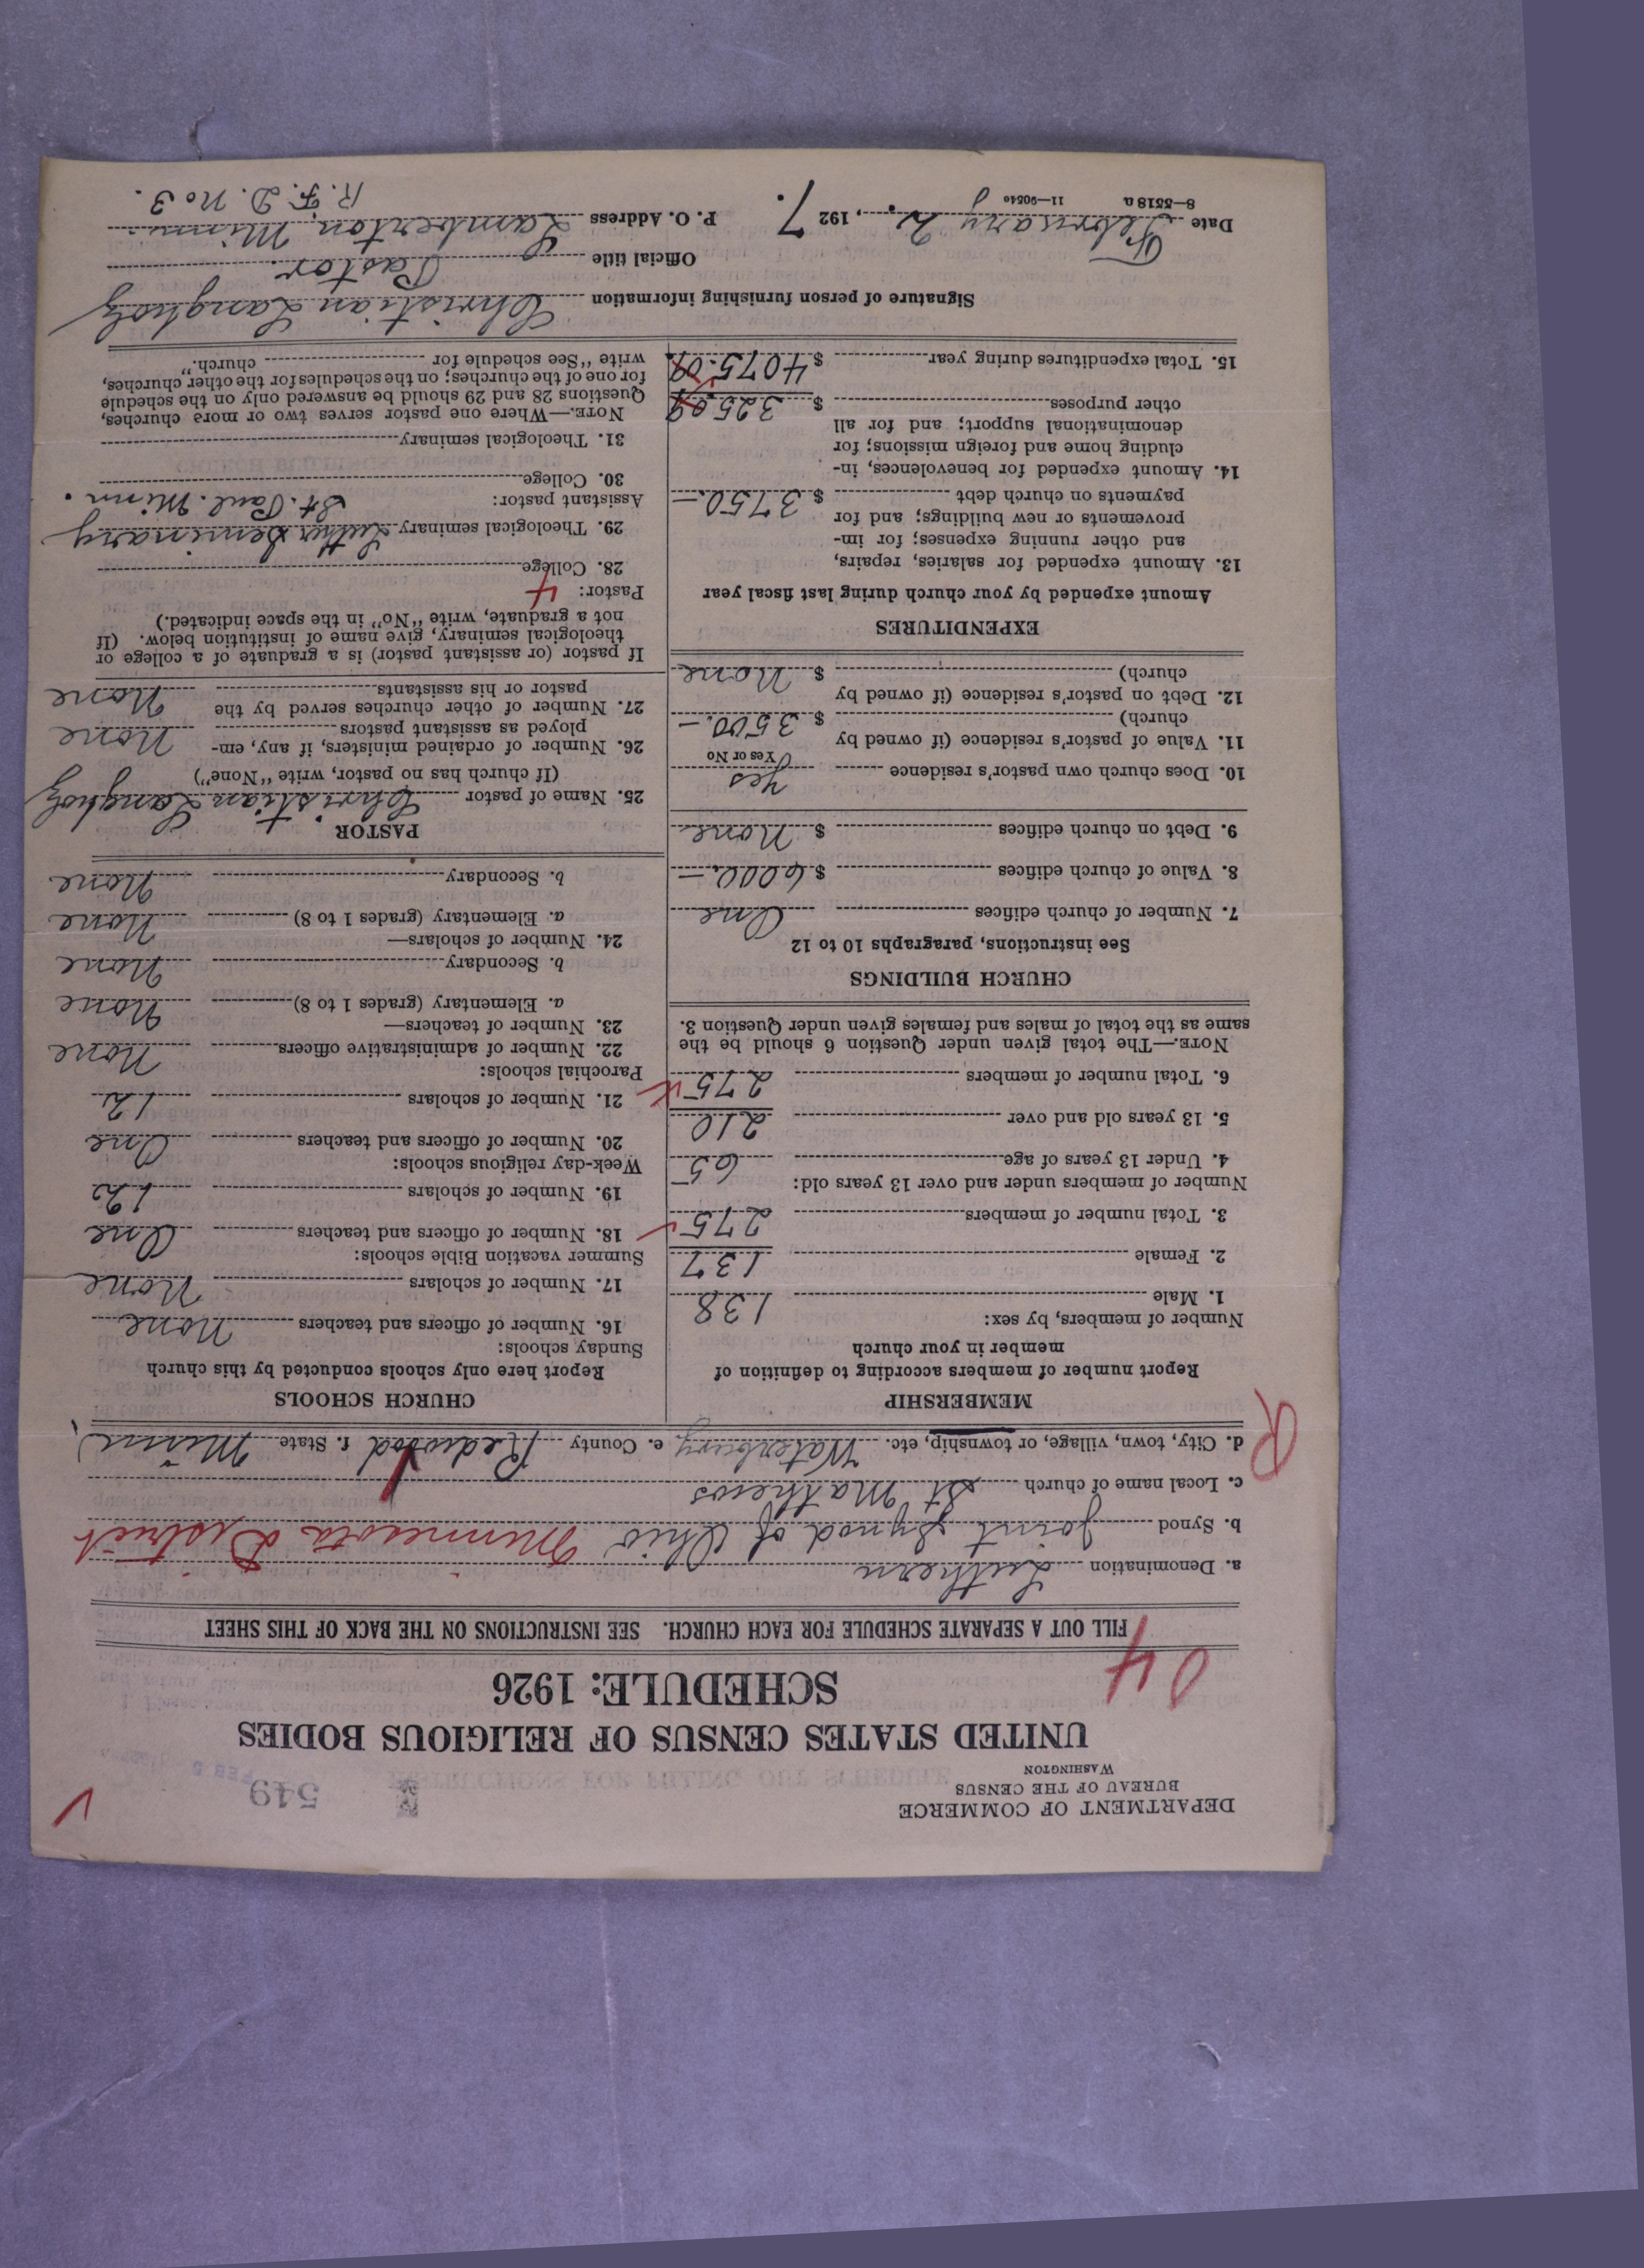 DEPARTMENT OF COMMERCE
BUREAU OF THE CENSUS
WASHINGTON
549
FEB 5
UNITED STATES CENSUS OF RELIGIOUS BODIES
SCHEDULE: 1926
04
FILL OUT A SEPARATE SCHEDULE FOR EACH CHURCH. SEE INSTRUCTIONS ON THE BACK OF THIS SHEET
a. Denomination Luthern
b. Synod Joint Synod of Ohio Minnesota District
c. Local name of church St Mathews
d. City, town, village, or township, etc. Waterbury e. County Redwood f. State Minn
R
MEMBERSHIP
Report number of members according to definition of
member in your church
Number of members, by sex:
1. Male 138
2. Female 137
3. Total number of members 275
Number of members under and over 13 years old:
4. Under 13 years of age 65
5. 13 years old and over 210
6. Total number of members 275
NOTE.—The total given under Question 6 should be the
same as the total of males and females given under Question 3.
CHURCH BUILDINGS
See instructions, paragraphs 10 to 12
7. Number of church edifices One
8. Value of church edifices $ 6000.—
9. Debt on church edifices $ None
10. Does church own pastor's residence Yes
Yes or No
11. Value of pastor's residence (if owned by
church) $ 3500.—
12. Debt on pastor's residence (if owned by
church) $ None
EXPENDITURES
Amount expended by your church during last fiscal year
13. Amount expended for salaries, repairs,
and other running expenses; for im-
provements or new buildings; and for
payments on church debt $ 3750.—
14. Amount expended for benevolences, in-
cluding home and foreign missions; for
denominational support; and for all
other purposes $ 325.09
15. Total expenditures during year $ 4075.09
CHURCH SCHOOLS
Report here only schools conducted by this church
Sunday schools:
16. Number of officers and teachers None
17. Number of scholars None
Summer vacation Bible schools:
18. Number of officers and teachers One
19. Number of scholars 12
Week-day religious schools:
20. Number of officers and teachers One
21. Number of scholars 12
Parochial schools:
22. Number of administrative officers None
23. Number of teachers—
a. Elementary (grades 1 to 8) None
b. Secondary None
24. Number of scholars—
a. Elementary (grades 1 to 8) None
b. Secondary None
PASTOR
25. Name of pastor Christian Langholz
(If church has no pastor, write "None")
26. Number of ordained ministers, if any, em-
ployed as assistant pastors None
27. Number of other churches served by the
pastor or his assistants None
If pastor (or assistant pastor) is a graduate of a college or
theological seminary, give name of institution below. (If
not a graduate, write "No" in the space indicated.)
Pastor: 4
28. College
29. Theological seminary Luther Seminary
St. Paul. Minn.
Assistant pastor:
30. College
31. Theological seminary
NOTE.—Where one pastor serves two or more churches,
Questions 28 and 29 should be answered only on the schedule
for one of the churches; on the schedules for the other churches,
write "See schedule for church."
Signature of person furnishing information Christian Langholz
Official title Pastor.
Date February 2., 1927. P. O. Address Lamberton, Minn.
R. F. D. No 3.
8—5518a 11—9054a